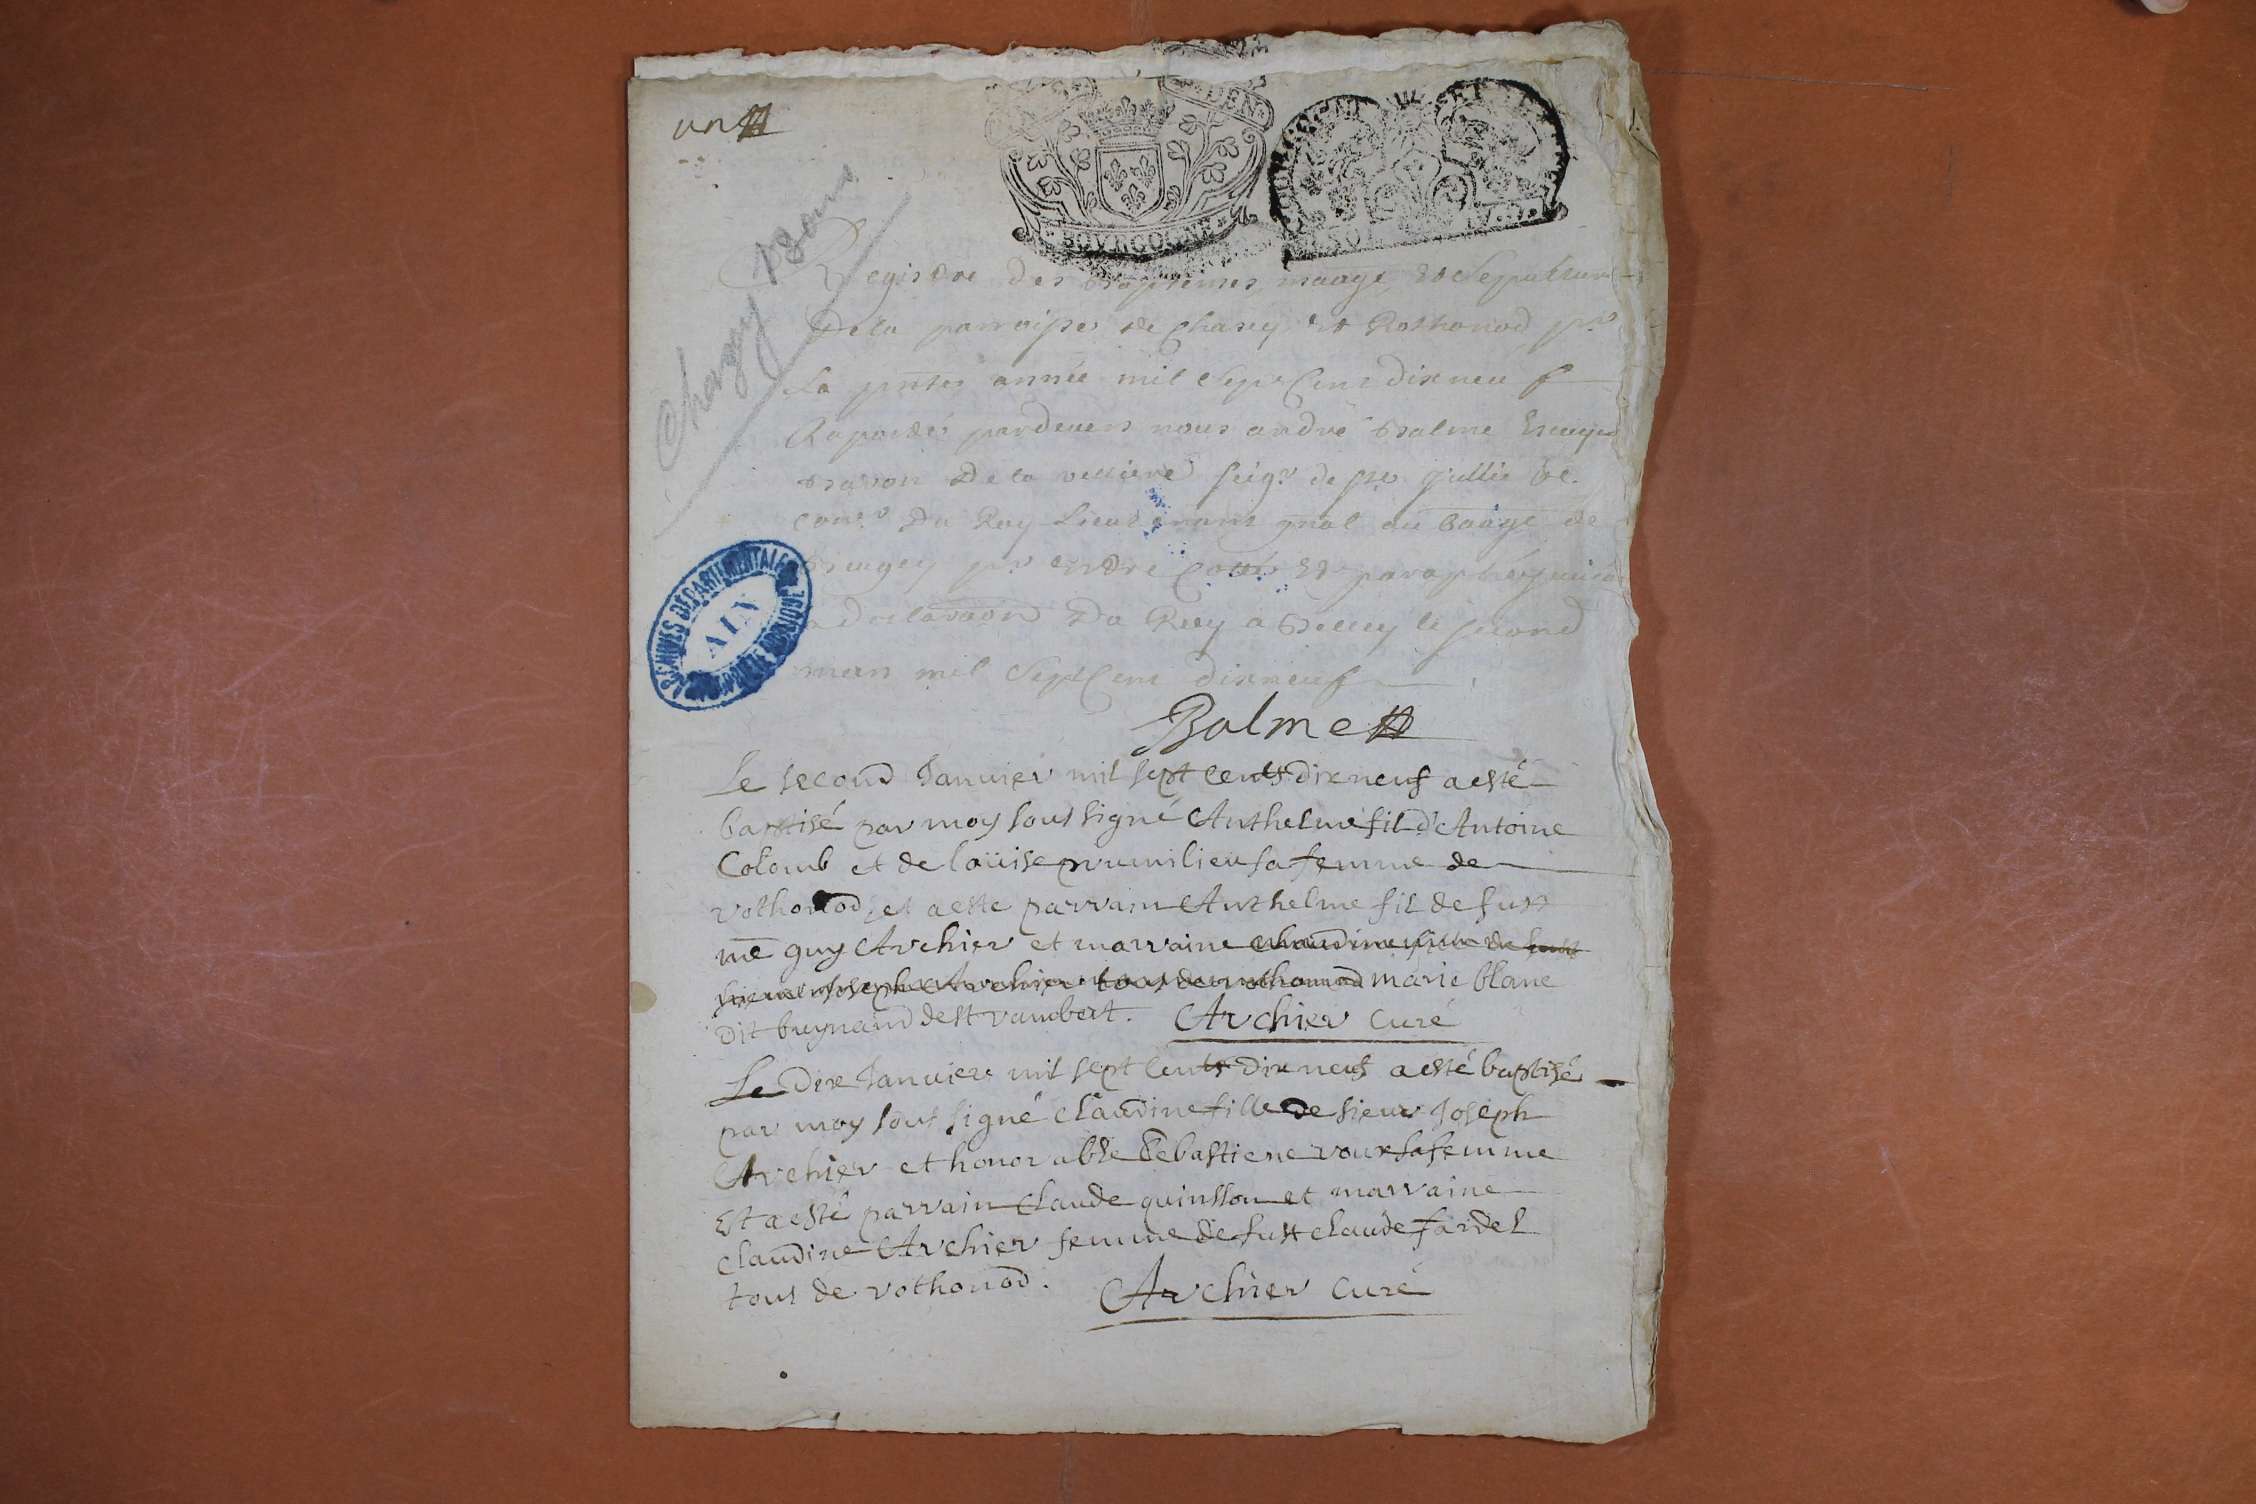 un
DEN
BOVRGOGNE
SOL
Chazey Bons
Registre des Baptemes, mariage, et Sepulture
De la parroisse de Chazey et Rothonod pr
La pnte année mil Sept Cent dix neuf
Raporté pardevers nous andré Balme Escuyer
Baron De la velliere seigr de ste Jullie &c.
Conr Du Roy Lieutenant gnal au Baage de
Beugey pr estre Cotté Et paraphé
declaraon Du Roy a Belley le second
mars mil Sept Cent dix neuf
ARCHIVES DÉPARTEMENTALES
AIN
Balme
Le second Janvier mil sept cents dix neuf a esté
baptisé par moy sous signé Anthelme fil d'Antoine
Colomb et de loüise numilieu sa femme de
rothonod, et a esté parrain Anthelme fil de fust
me guy Archier et marraine claudine fille de
sieur Joseph Archier tous de rothonod marie blanc
dit buynand de st rambert. Archier curé
Le dix Janvier mil sept cents dix neuf a esté baptisé
par moy sous signé claudine fille de sieur Joseph
Archier et honorable sebastiene roux sa femme
Et a esté parrain claude quinsson et marraine
claudine Archier femme de fust claude fardel
tous de rothonod. Archier curé